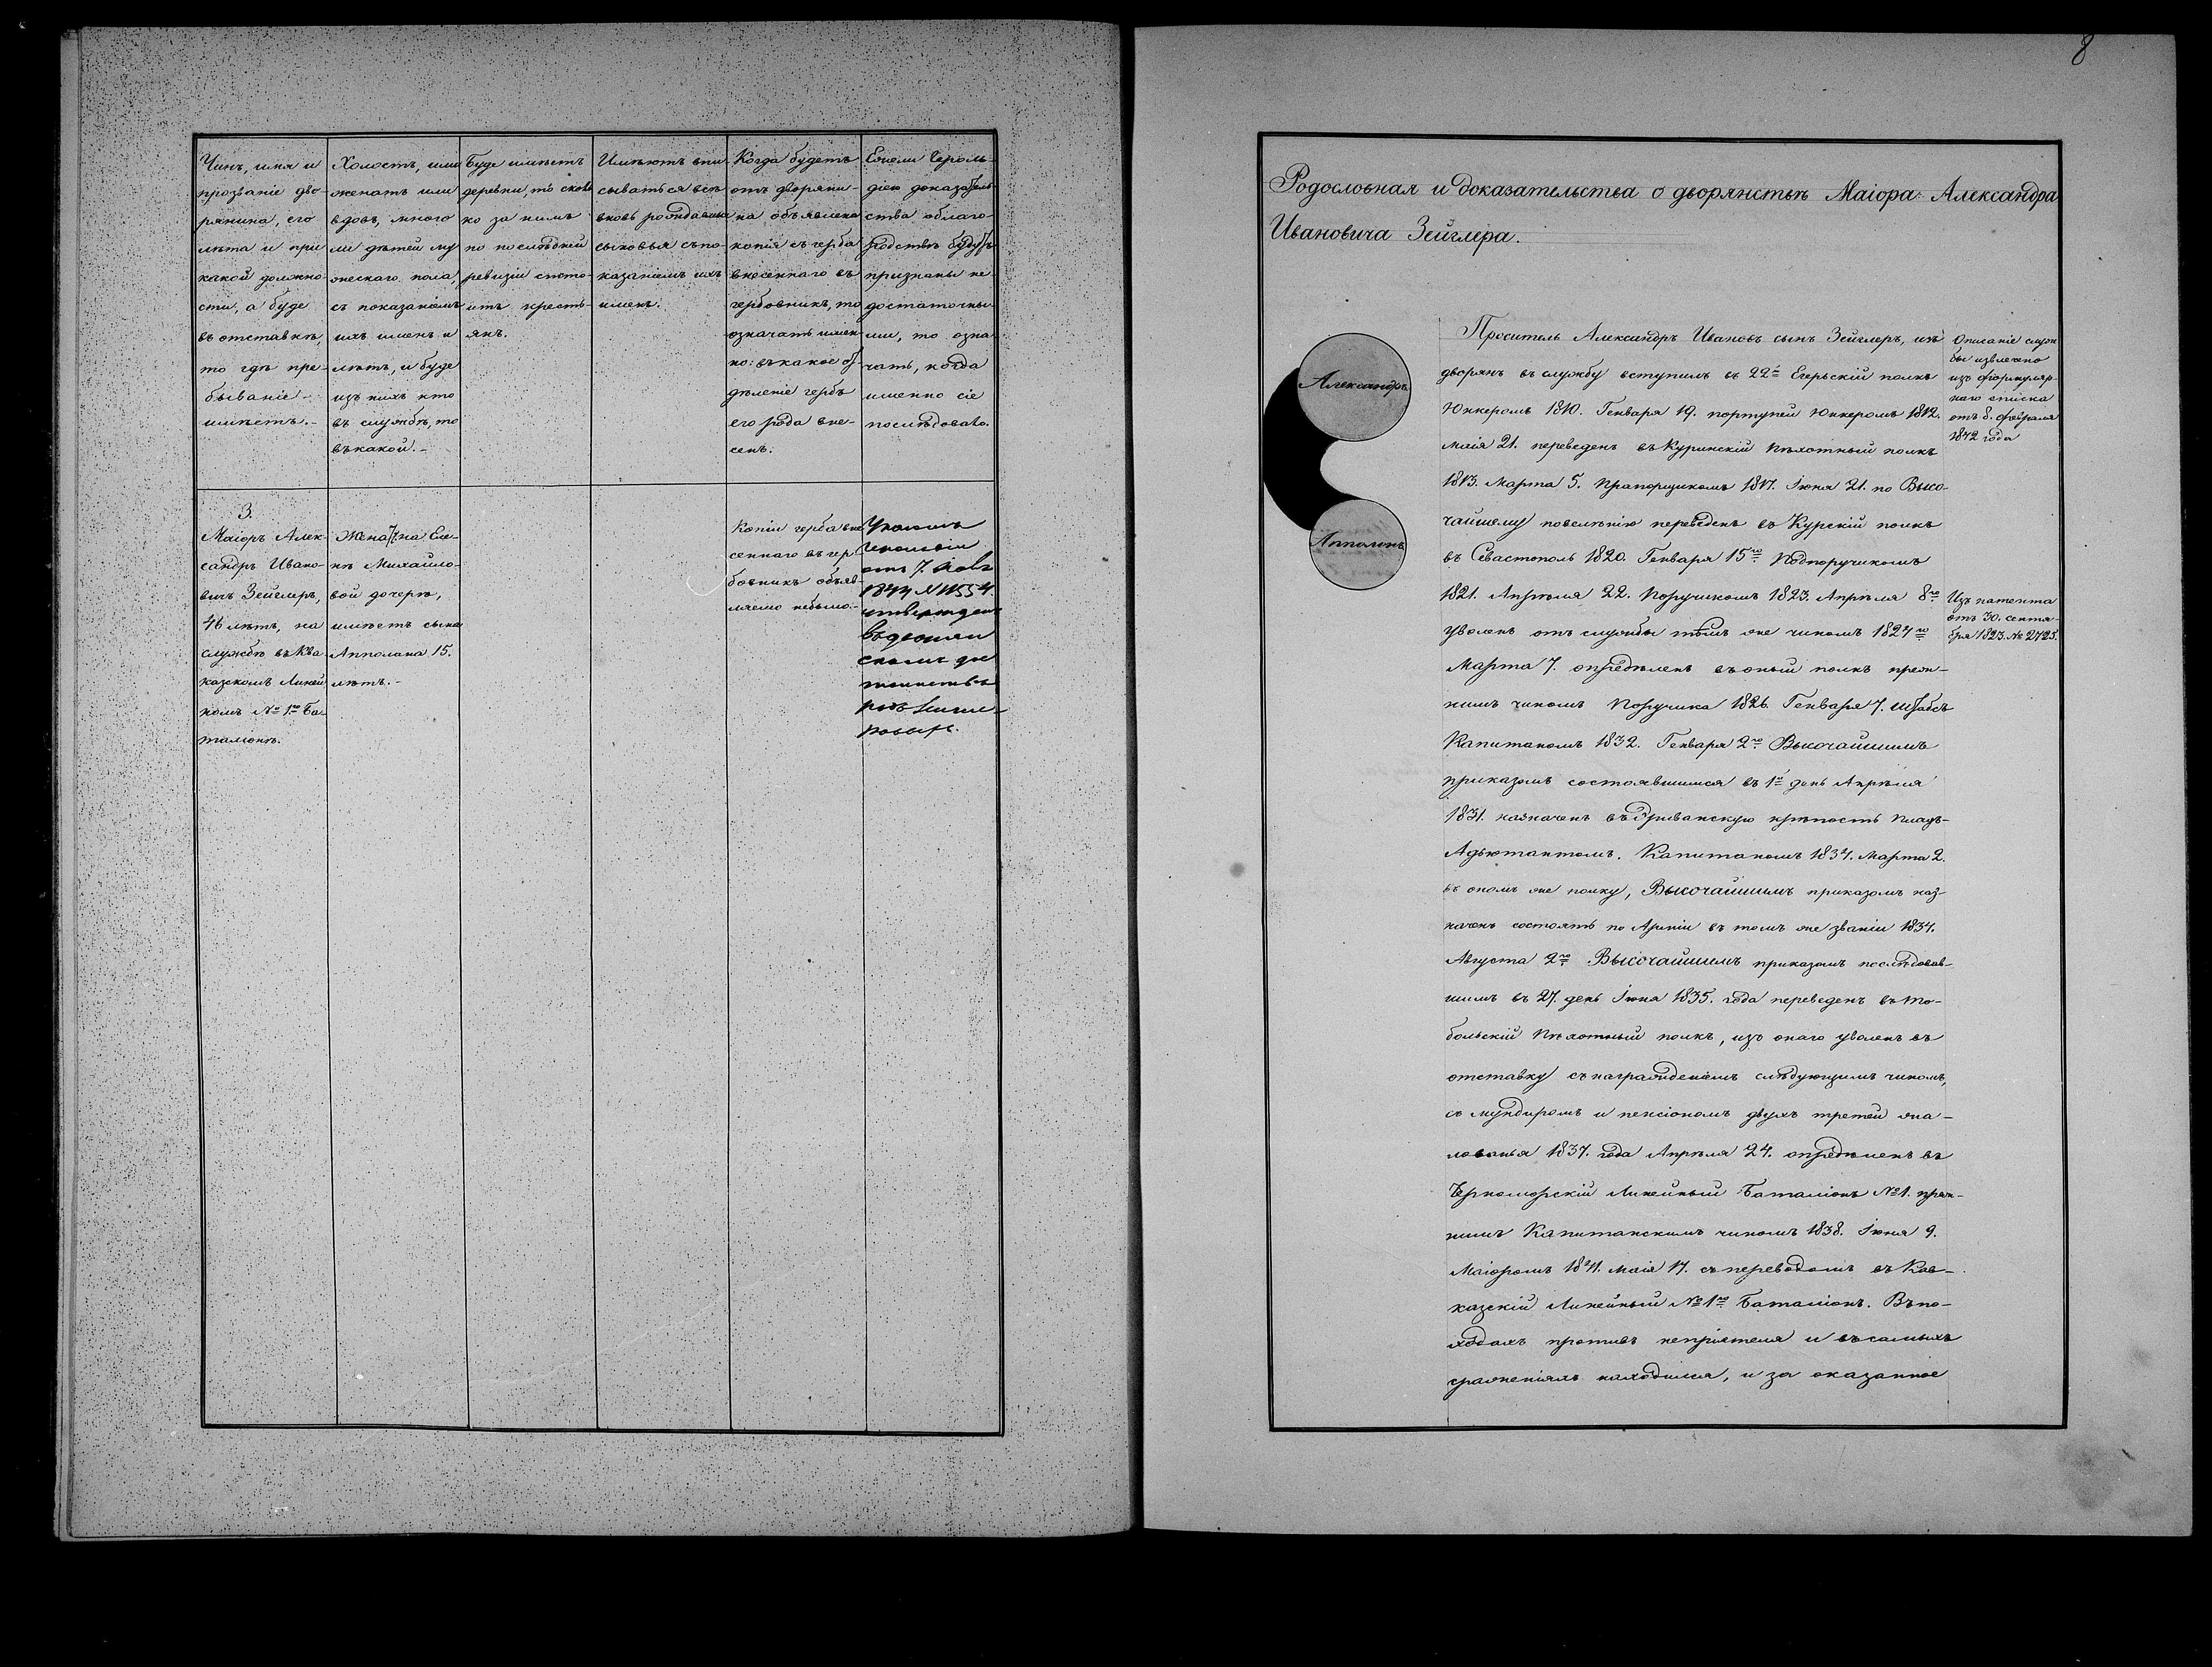 Чинъ, имя и
прозваніе дво-
рянина, его
лѣта и при
какой должно-
сти, а буде
въ отставкѣ,
то гдѣ пре-
бываніе
имѣетъ.-
Холостъ, или
женатъ или
вдовъ, много
ли дѣтей му
жескаго пола,
съ показаніемъ
ихъ именъ и
лѣтъ, и буде
изъ нихъ кто
въ службѣ, то
въ какой.-
Буде имѣетъ
деревни, то сколь
ко за нимъ
по послѣдней
ревизіи состо-
итъ кресть-
янъ.
Имѣютъ впи
сываться всѣ
вновь рождавшіе
сыновья съ по-
казаніемъ ихъ
именъ.
Когда будетъ
отъ дворяни-
на объявлена
копія съ герба
внесеннаго въ
гербовникъ, то
означать имен
но: въ какое от
дѣленіе гербъ
его рода вне-
сенъ.
Ежели Героль-
діею доказатель
ства облаго-
родствѣ будутъ
признаны не-
достаточны-
ми, то озна-
чать, когда
именно сіе
послѣдовало.
3.
Маіоръ Алек-
сандръ Ивано-
вичъ Зейглеръ,
46 лѣтъ, на
службѣ въ Кав
казскомъ Линей
номъ № 1го Ба-
таліонѣ.
Женатъ на Еле-
нѣ Михайло-
вой дочерѣ,
имѣетъ сына
Апполона 15.
лѣтъ.-
Копіи герба вне
сеннаго въ гер
бовникъ объяв-
ляемо небыло.-
Указомъ
Герольдіи
отъ 7. Нояб
1844 № 11554
утвержденъ
въ дворян
скомъ до
стоинствѣ
родъ Зейгле-
ровыхъ.
8
Родословная и доказательства о дворянствѣ Маіора Александра
Ивановича Зейглера.
Александръ
Апполонъ
Проситель Александръ Ивановъ сынъ Зейглеръ, изъ
дворянъ въ службу вступилъ въ 22й Егерьскій полкъ
Юнкеромъ 1810. Генваря 19. портупей Юнкеромъ 1812.
маія 21. переведенъ въ Куринскій Пѣхотный полкъ
1813. Марта 5. Прапорщикомъ 1817. Іюня 21. по Высо-
чайшему повелѣнію переведенъ въ Курскій полкъ
въ Севастополь 1820. Генваря 15го Подпоручикомъ
1821. Апрѣля 22. Поручикомъ 1823. Апрѣля 8го
уволенъ отъ службы тѣмъ же чиномъ 1824го
Марта 7. опредѣленъ въ оный полкъ преж-
нимъ чиномъ Поручика 1826. Генваря 7. Штабсъ
Капитаномъ 1832. Генваря 2го Высочайшимъ
приказомъ состоявшимся въ 1й день Апрѣля
1831. назначенъ въ Эриванскую крѣпость Плацъ-
Адъютантомъ. Капитаномъ 1834. Марта 2.
въ ономъ же полку, Высочайшимъ приказомъ наз-
наченъ состоять по Арміи въ томъ же званіи 1834.
Августа 2го Высочайшимъ приказомъ послѣдовав-
шимъ въ 27. день Іюня 1835. года переведенъ въ То-
больскій Пѣхотный полкъ, изъ онаго уволенъ въ
отставку съ награжденіемъ слѣдующимъ чиномъ,
съ мундиромъ и пенсіономъ двухъ третей жа-
лованья 1837. года Апрѣля 24. опредѣленъ въ
Черноморскій Линейный Баталіонъ № 1. преж-
нимъ Капитанскимъ чиномъ 1838. Іюня 9.
Маіоромъ 1841. Маія 17. съ переводомъ въ Кав-
казскій Линейный № 1го Баталіонъ. Въ по-
ходахъ противъ непріятеля и въ самыхъ
сраженіяхъ находился, и за оказанное
Описаніе служ
бы извлечено
изъ формуляр-
наго списка
отъ 8. февраля
1842 года
Изъ патента
отъ 30. сентя-
бря 1823. № 2725.